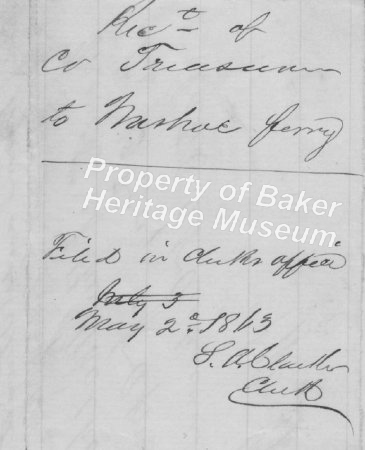 Rec't of
Co Treasurer
to Washoe ferry
Property of Baker
Heritage Museum.
Filed in clerks office
July 3
May 2d 1863
S. A. Clarke
Clerk